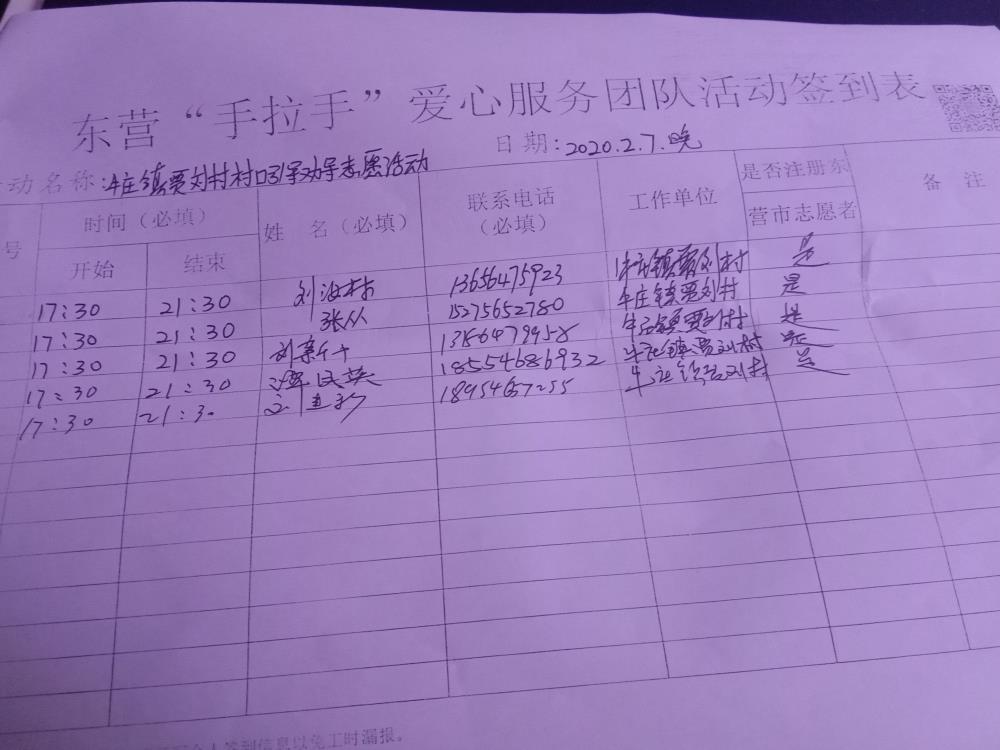 东营“手拉手”爱心服务团队活动签到表
日期:2020.2.7.晚
动名称:牛庄镇贾刘村村口引导劝导志愿活动
号 时间(必填) 姓 名(必填) 联系电话(必填) 工作单位 是否注册东营市志愿者 备 注
开始 结束
17:30 21:30 刘海林 13656475923 牛庄镇贾刘村 是
17:30 21:30 张从 15275652780 牛庄镇贾刘村 是
17:30 21:30 刘 13864 牛庄镇贾刘村 是
17:30 21:30 谭民英 18554686932 牛庄镇贾刘村 是
17:30 21:30 刘 牛庄镇贾刘村 是
签到信息以免工时漏报。